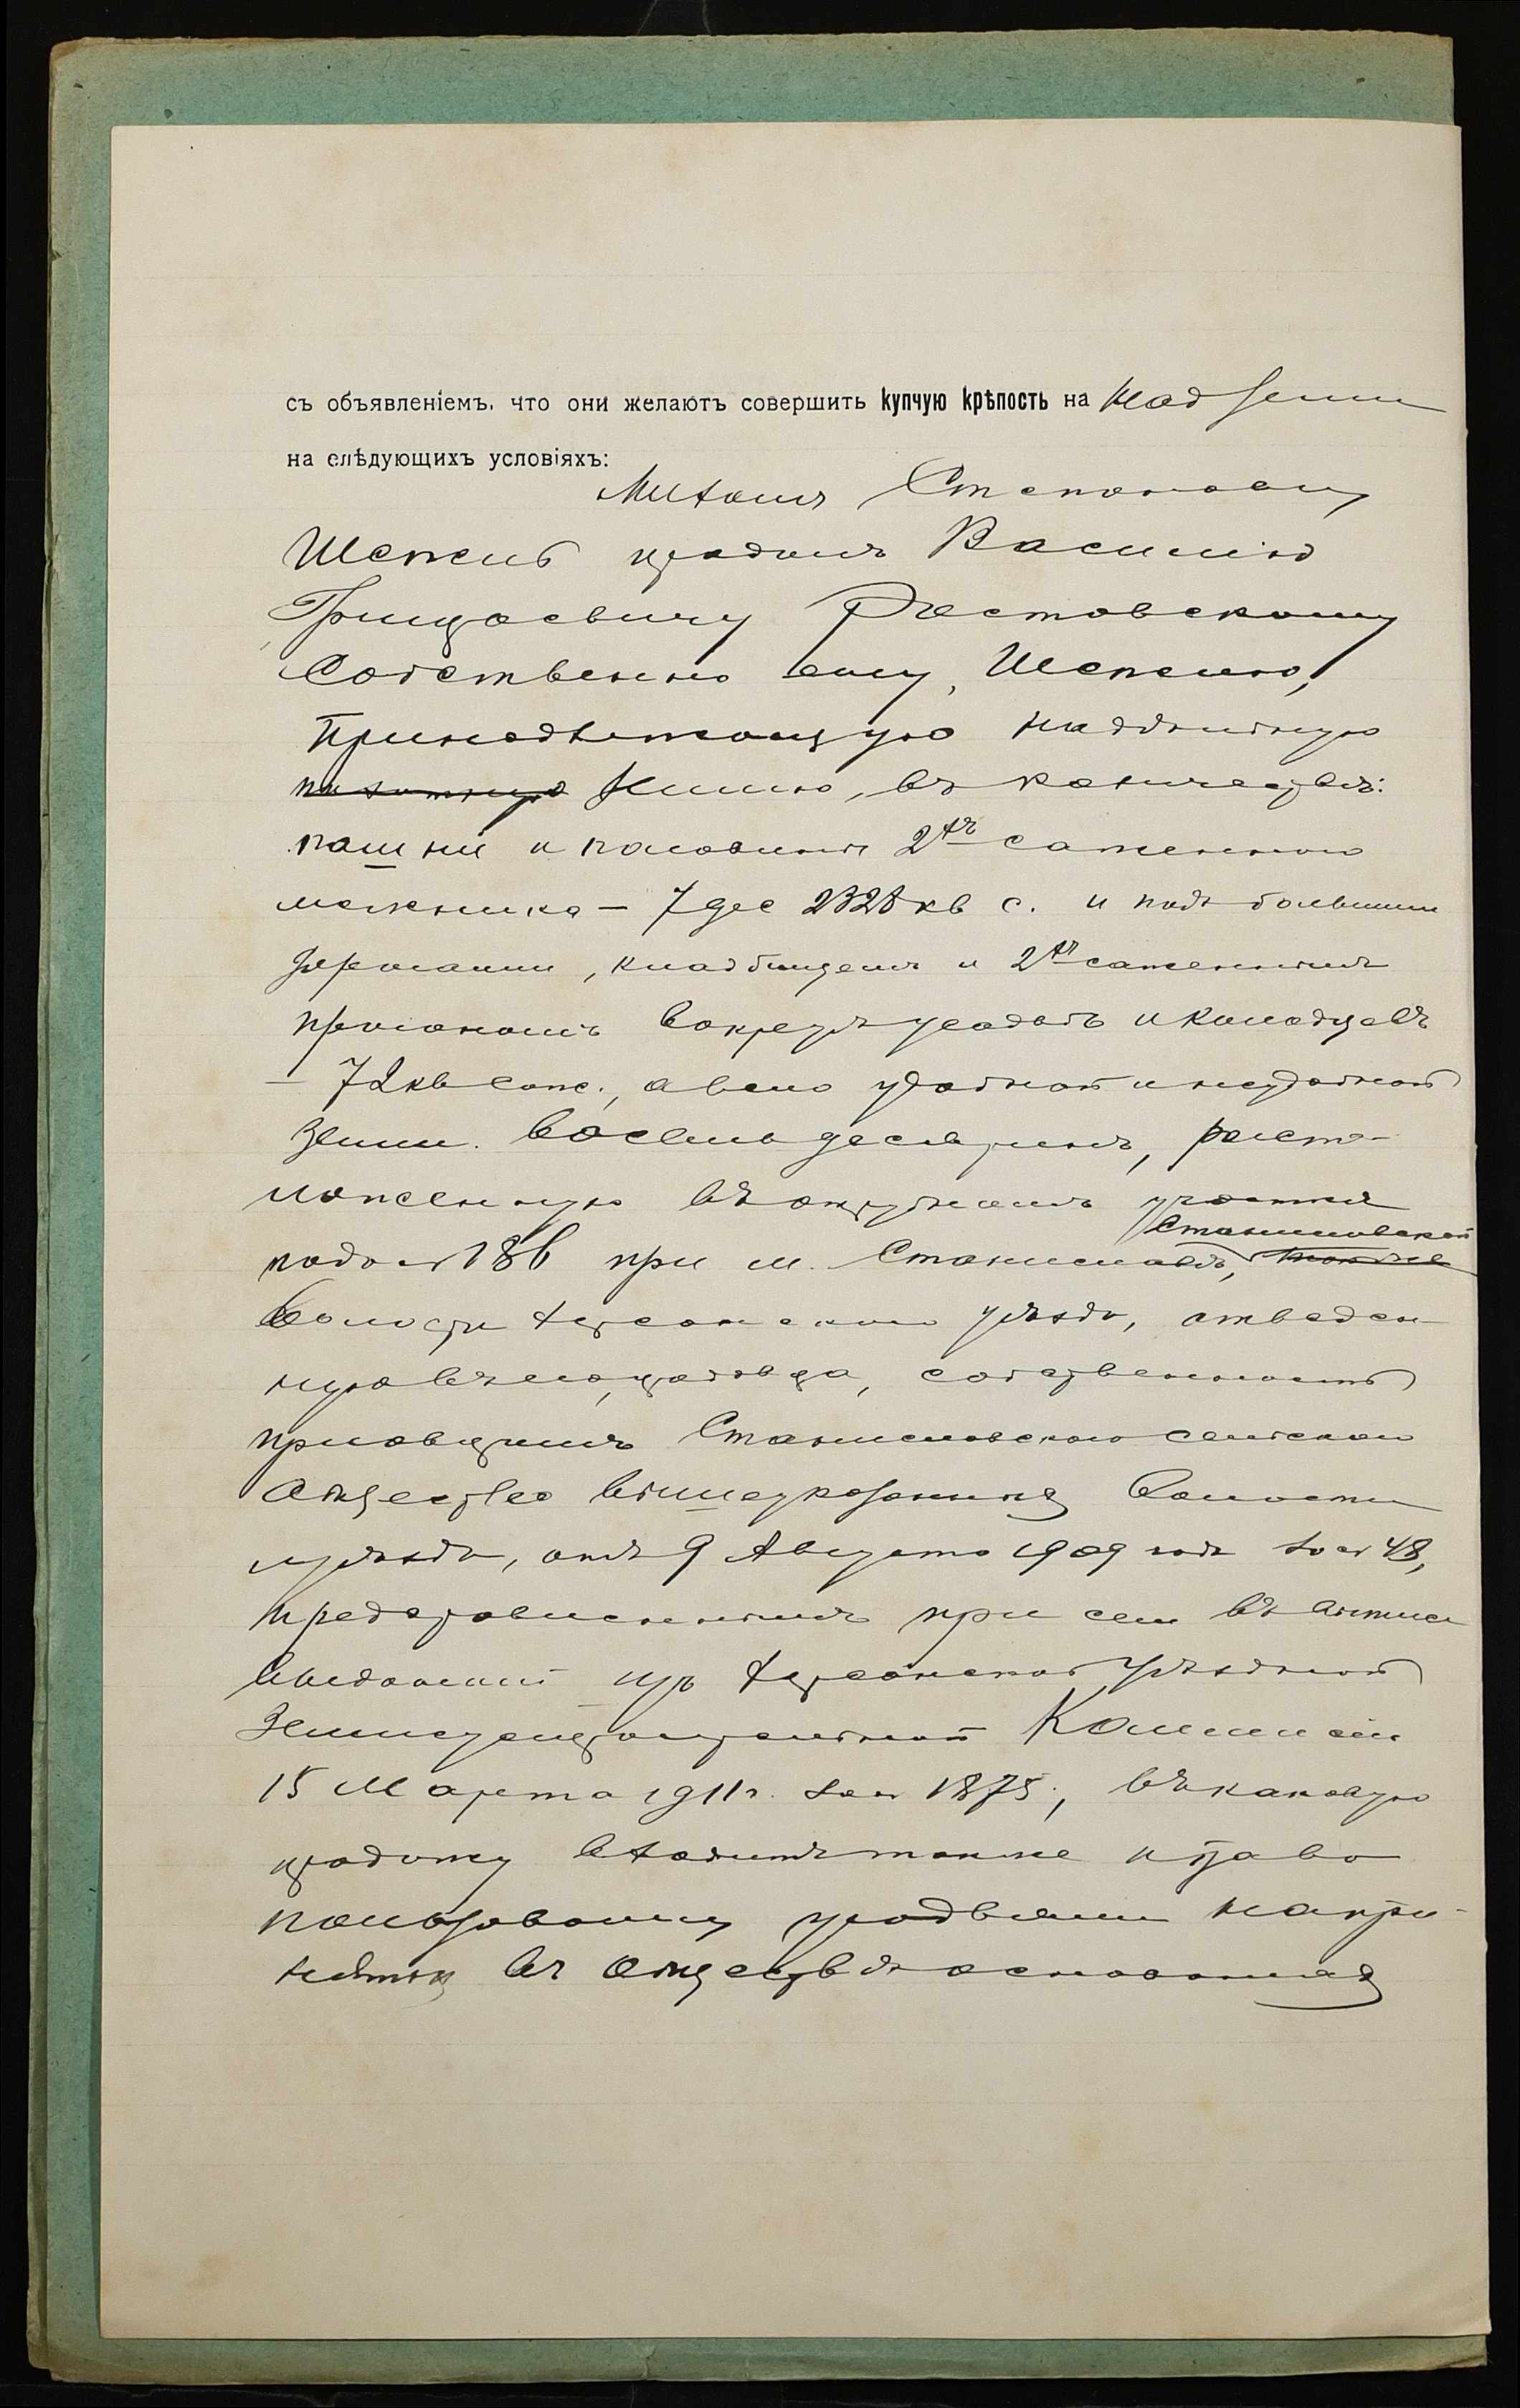 съ объявленіемъ, что они желаютъ совершить купчую крѣпость на над земли
на слѣдующихъ условіяхъ:
Михаилъ Степановичъ
Шепель продалъ Василію
Григорьевичу Ростовскому
Собственно ему, Шепелю,
принадлежащую надѣльную
пахатную землю, въ количествѣ:
пашни и половины 2хъ саженнаго
межника – 7 дес 2328 кв с. и подъ большими
дорогами, кладбищемъ и 2хъ саженнымъ
прогономъ вокругъ усадьбъ и колодцевъ
– 72 кв саж., а всего удобной и неудобной
земли восемь десятинъ, располо-
ложенную въ отрубномъ участкѣ
Станиславской
подъ № 186 при м. Станиславѣ,
волости Херсонскаго уѣзда, отведен-
ную въ его, продавца, собственность
приговоромъ Станиславскаго сельскаго
общества вышеуказанныхъ волости
и уѣзда, отъ 9 Августа 1909 года за № 48,
представленнымъ при семъ въ выписи
выданной изъ Херсонской Уѣздной
Землеустроительной Комиссіи
15 Марта 1911 г. за № 1875, въ каковую
продажу входитъ также и право
пользованія угодьями на при-
нятыхъ въ обществѣ основаніяхъ